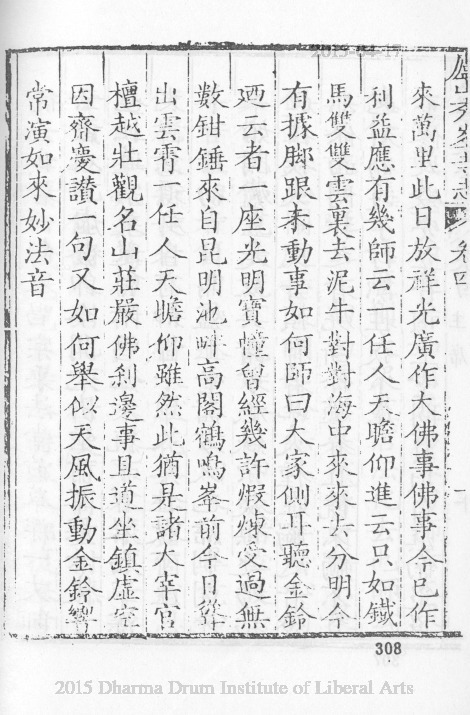 來萬里此日放祥光廣作大佛事佛事今已作
利益應有幾師云一任人天瞻仰進云只如鐵
馬雙雙雲裏去泥牛對對海中來來去分明今
有據脚跟未動事如何師曰大家側耳聽金鈴
迺云者一座光明寶幢曾經幾許煆煉受過無
數鉗錘來自昆明池畔高閣鶴鳴峯前今日聳
出雲霄一任人天瞻仰雖然此猶是諸大宰官
檀越壯觀名山莊嚴佛刹邊事且道坐鎮虛空
因齊慶讚一句又如何舉似天風振動金鈴響
常演如來妙法音
308
2015 Dharma Drum Institute of Liberal Arts